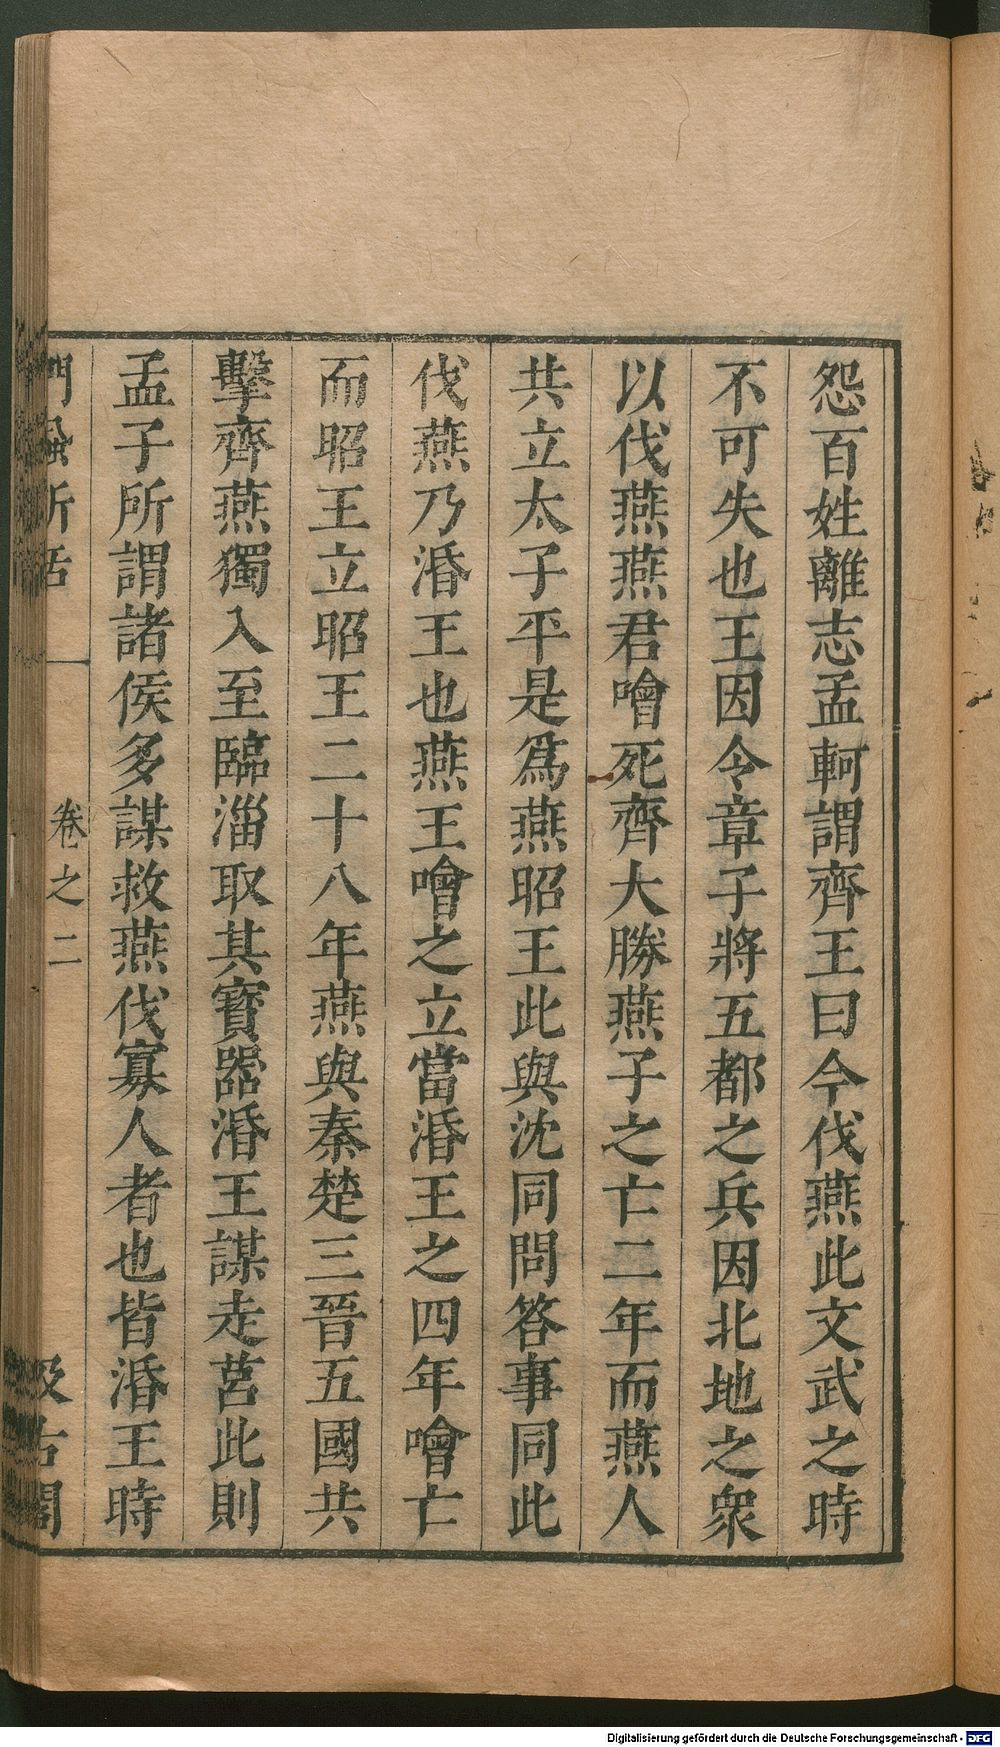 怨百姓離志孟軻謂齊王曰今伐燕此文武之時
不可失也王因令章子將五都之兵因北地之衆
以伐燕燕君噲死齊大勝燕子之亡二年而燕人
共立太子平是爲燕昭王此與沈同問答事同此
伐燕乃湣王也燕王噲之立當湣王之四年噲亡
而昭王立昭王二十八年燕與秦楚三晉五國共
擊齊燕獨入至臨淄取其寶器湣王謀走莒此則
孟子所謂諸侯多謀救燕伐寡人者也皆湣王時
捫蝨新話 卷之二 汲古閣
Digitalisierung gefördert durch die Deutsche Forschungsgemeinschaft - DFG